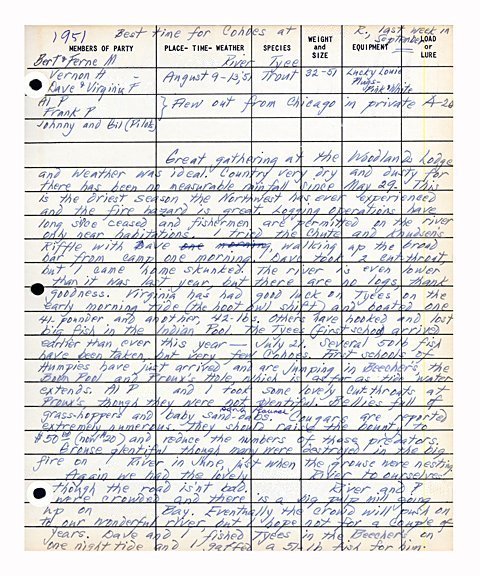 1951 Best time for Cohoes at R, last week in September
MEMBERS OF PARTY PLACE- TIME- WEATHER SPECIES WEIGHT and SIZE EQUIPMENT LOAD or LURE
Bert & Ferne M River Tyee
Vernon H August 9-13, 51 Trout 32-51 Lucky Louie
Dave & Virginia F Plugs-
Pink & White
Al P } Flew out from Chicago in private A-26
Frank P
Johnny and Bil (Pilots)
Great gathering at the Woodlands Lodge
and weather was ideal. Country very dry and dusty for
there has been no measurable rainfall since May 29. This
is the driest season the Northwest has ever experienced
and the fire hazard is great. Logging operations have
long since ceased and fishermen are permitted on the river
only near habitations. I tried the Chute and Knudsen's
Riffle with Dave one morning, walking up the broad
bar from camp one morning. Dave took 2 cutthroat
but I came home skunked. The river is even lower
than it was last year, but there are no logs, thank
goodness. Virginia has had good luck on Tyees on the
early morning tide the boot owl shift, and boated one
41 pounder and another 42 lbs. Others have hooked and lost
big fish in the Indian Pool. The Tyees (first school) arrived
earlier than ever this year — July 21. Several 50 lb fish
have been taken, but very few Cohoes. First schools of
Humpies have just arrived and are jumping in Beecher's, the
Boom Pool and Froux's Hole which is as far as tide water
extends. Al P and I took some lovely Cutthroats at
Froux's though they were not plentiful. Bellies full of
grass-hoppers and baby sand-dabs. Cougars are reported
extremely numerous they should raise the bounty to
$50.00 (now $20) and reduce the numbers of those predators.
Grouse plentiful though many were destroyed in the big
fire on River in June, just when the grouse were nesting
Again we had the lovely River to ourselves
though the road isn't bad. River and P
were crowded and there is a big pulp mill going
up on Bay. Eventually the crowd will push on
to our wonderful river but I hope not for a couple of
years. Dave and I fished Tyees in the Beechers on
one night tide and I gaffed a 51 lb fish for him.